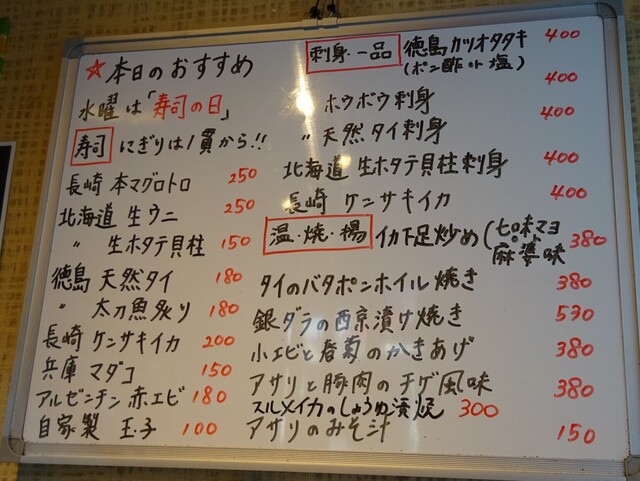 ☆本日のおすすめ
水曜は「寿司の日」
寿司 にぎりは1貫から!!
長崎 本マグロトロ 250
北海道 生ウニ 250
〃 生ホタテ貝柱 150
徳島 天然タイ 180
〃 太刀魚炙り 180
長崎 ケンサキイカ 200
兵庫 マダコ 150
アルゼンチン 赤エビ 180
自家製 玉子 100
刺身・一品 徳島 カツオタタキ 400
(ポン酢or塩)
ホウボウ刺身 400
〃 天然タイ刺身 400
北海道 生ホタテ貝柱刺身 400
長崎 ケンサキイカ 400
温・焼・揚 イカ下足炒め(七味マヨor麻婆味 380
タイのバタポンホイル焼き 380
銀ダラの西京漬け焼き 530
小エビと春菊のかきあげ 380
アサリと豚肉のチゲ風味 380
スルメイカのしょうゆ漬焼 300
アサリのみそ汁 150